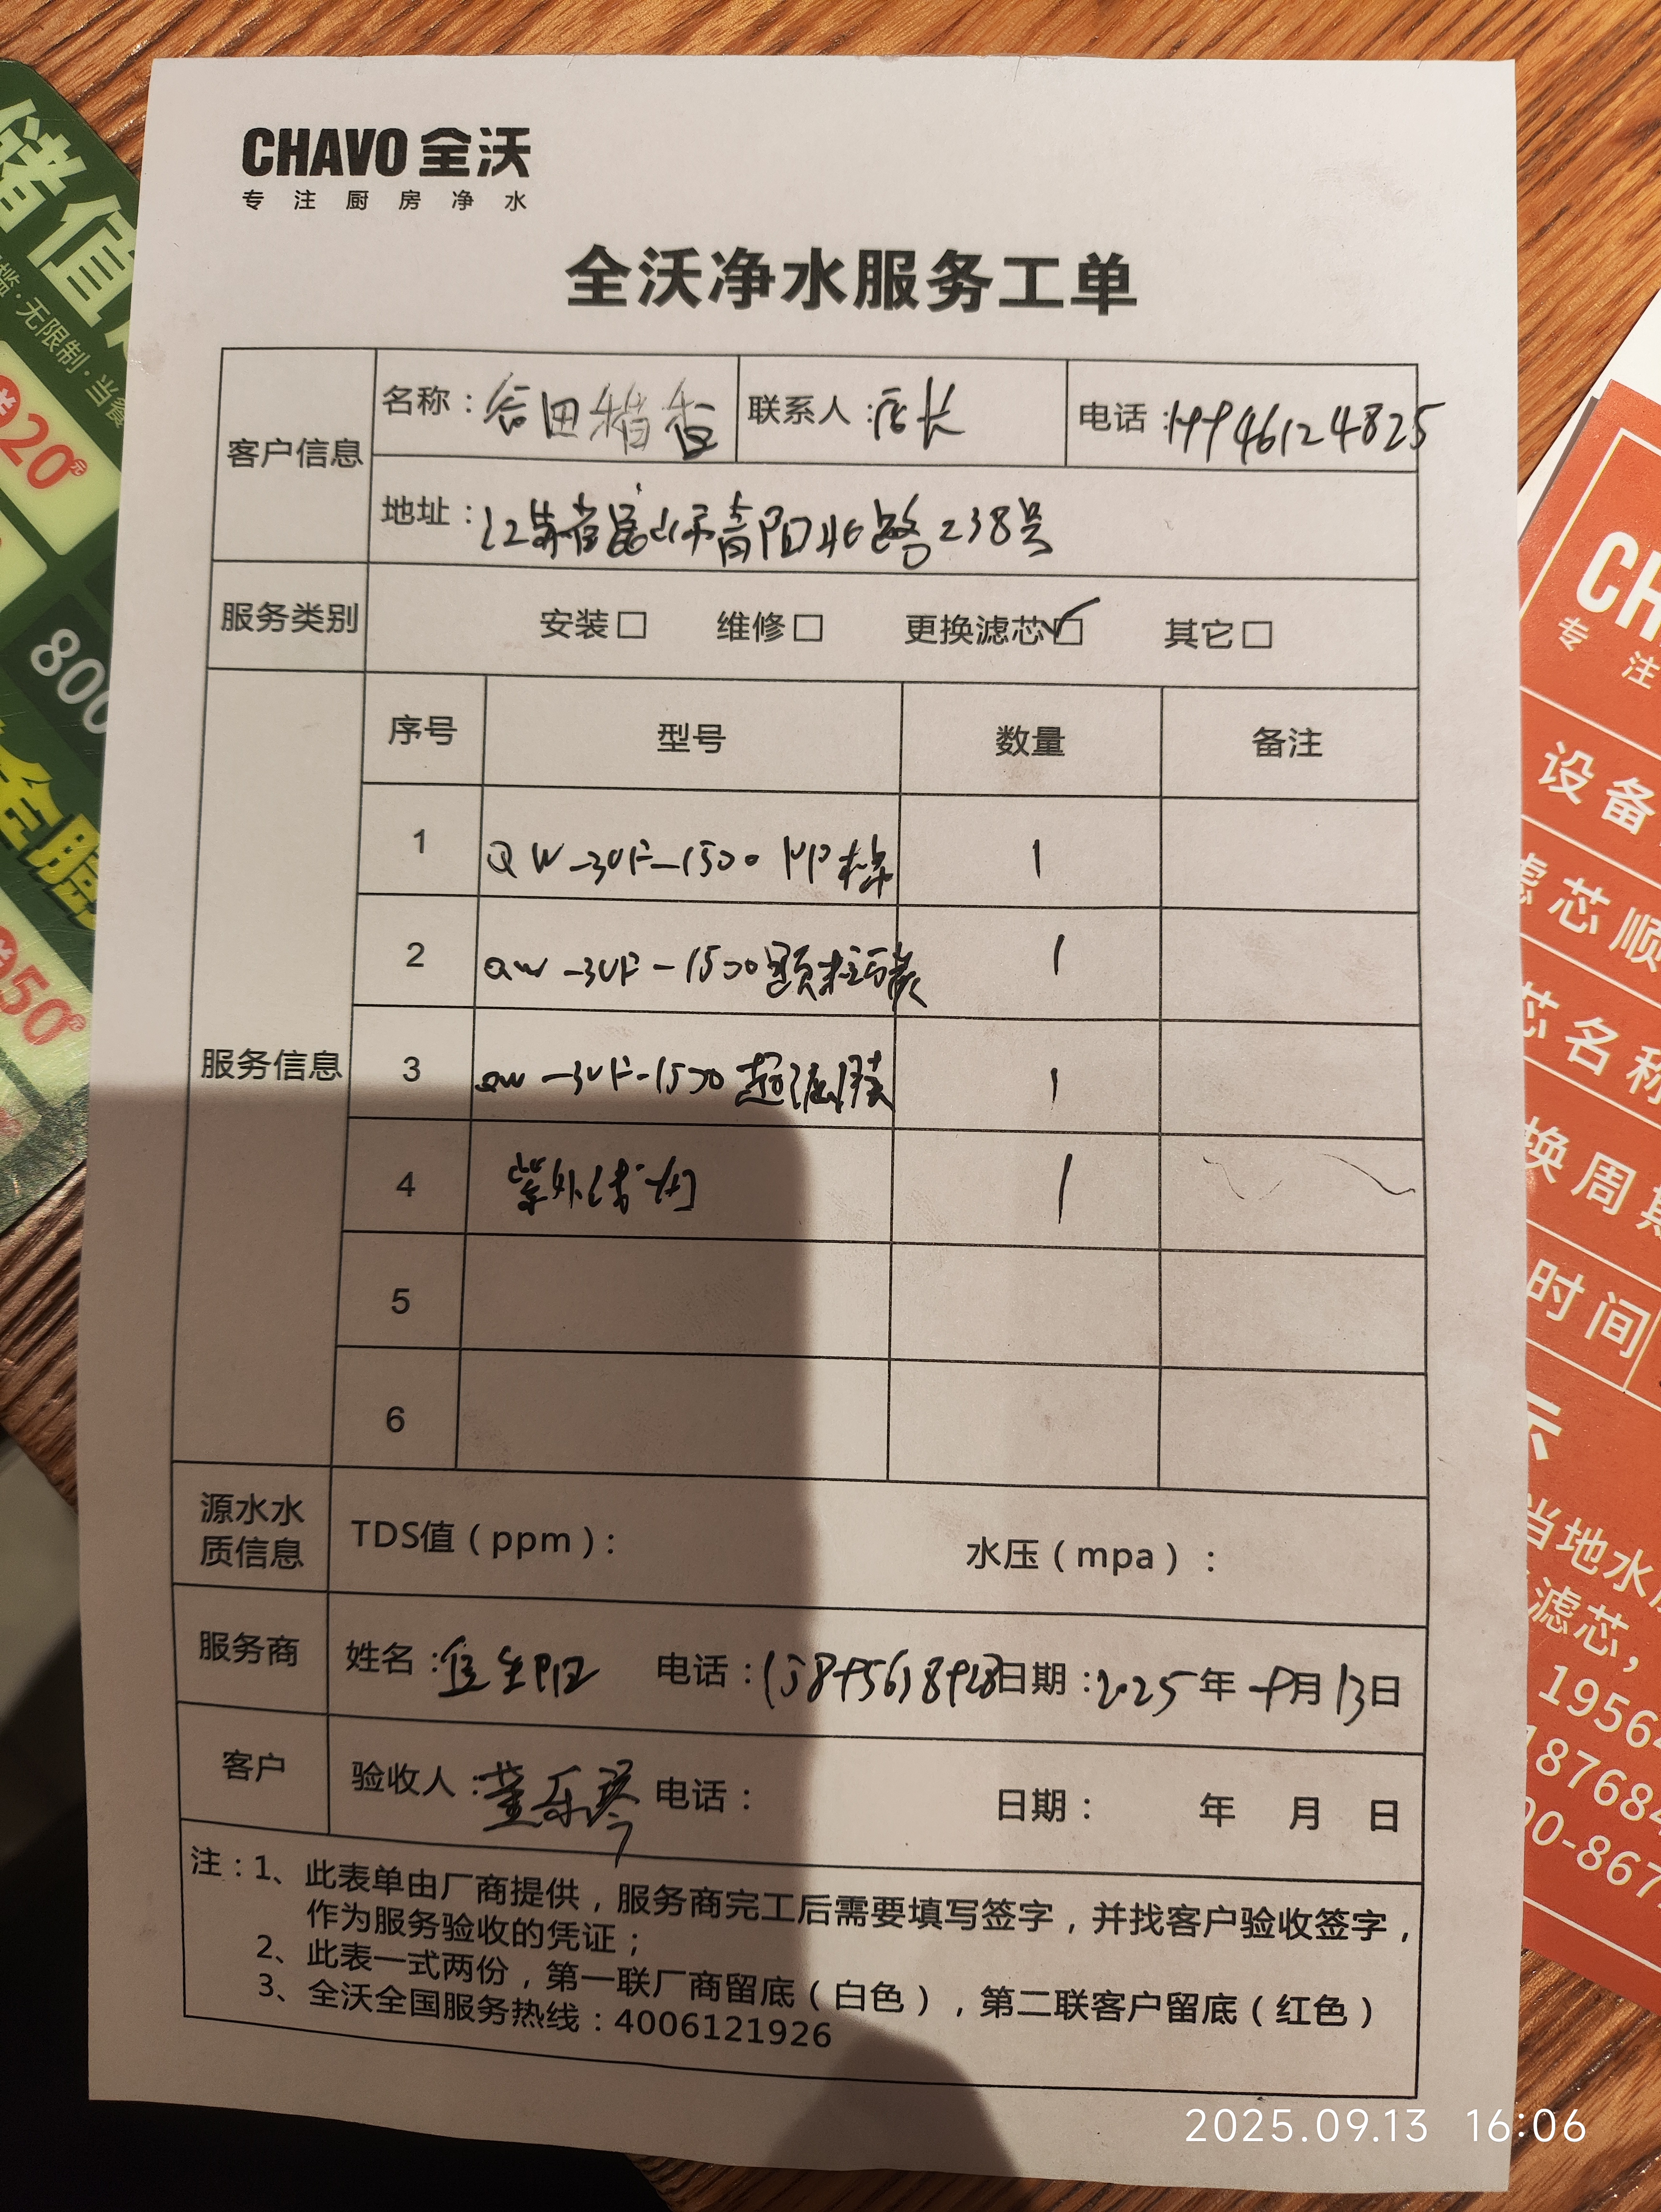 CHAVO 全沃
专注厨房净水
全沃净水服务工单
客户信息
名称：谷田稻香 联系人：店长 电话：19946124825
地址：江苏省昆山市青阳北路238号
服务类别 安装□ 维修□ 更换滤芯☑ 其它□
服务信息
序号 型号 数量 备注
1 QW-3UF-1500 PP棉 1
2 QW-3UF-1500颗粒碳 1
3 QW-3UF-1500超滤膜 1
4 紫外线灯 1
5
6
源水水质信息 TDS值（ppm）： 水压（mpa）：
服务商 姓名： 电话： 日期：2025年9月13日
客户 验收人：董乐琴 电话： 日期： 年 月 日
注：1、此表单由厂商提供，服务商完工后需要填写签字，并找客户验收签字，
作为服务验收的凭证；
2、此表一式两份，第一联厂商留底（白色），第二联客户留底（红色）
3、全沃全国服务热线：4006121926
储值
无限制·当餐
送20元
800
全
送50元
CH
专 注
设备
滤芯顺
芯名称
换周期
时间
示
当地水
滤芯，
1956
18768
00-867
2025.09.13 16:06